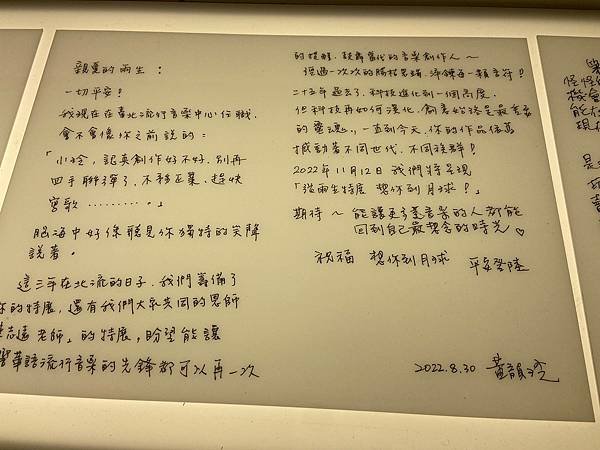 親愛的雨生：
一切平安！
我現在在臺北流行音樂中心任職，
會不會像你之前說的：
「小玲，認真創作好不好，別再
四手聯彈了，不務正業，趕快
寫歌………。」
腦海中好像聽見你獨特的笑
說著。
這三年在北流的日子，我們籌備了
你的特展，還有我們大家共同的恩師
志遠老師」的特展，盼望能讓
響華語流行音樂的先鋒都可以再一次
的提醒、鼓舞當代的音樂創作人～
經過一次次的腸枯思竭，淬鍊每一顆音符！
二十五年過去了，科技進化到一個高度，
但科技再如何演化，創意始終是最重要
的靈魂。一直到今天，你的作品依舊
撼動著不同世代、不同族群！
2022年11月12日 我們特呈現
「從雨生特展 想你到月球！」
期待～ 能讓更多愛音樂的人都能
回到自己最想念的時光♡
祝福 想你到月球 平安登陸
2022.8.30 黃韻玲
怪怪的
機會
能
現
是